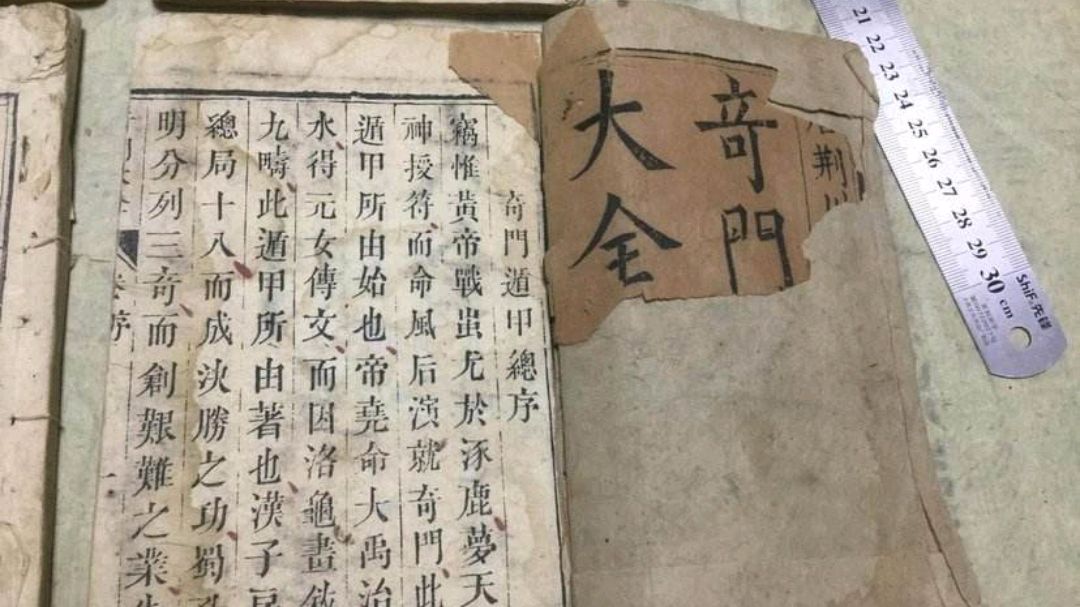 奇門
大全
荆川
奇門遁甲總序
竊惟黃帝戰蚩尤於涿鹿夢天
神授符而命風后演就奇門此
遁甲所由始也帝堯命大禹治
水得元女傳文而因洛龜畫敘
九疇此遁甲所由著也漢子房
總局十八而成決勝之功蜀孔
明分列三奇而創艱難之業
卷序
一
21 22 23 24 25 26 27 28 29 30 cm
ShiF 先锋